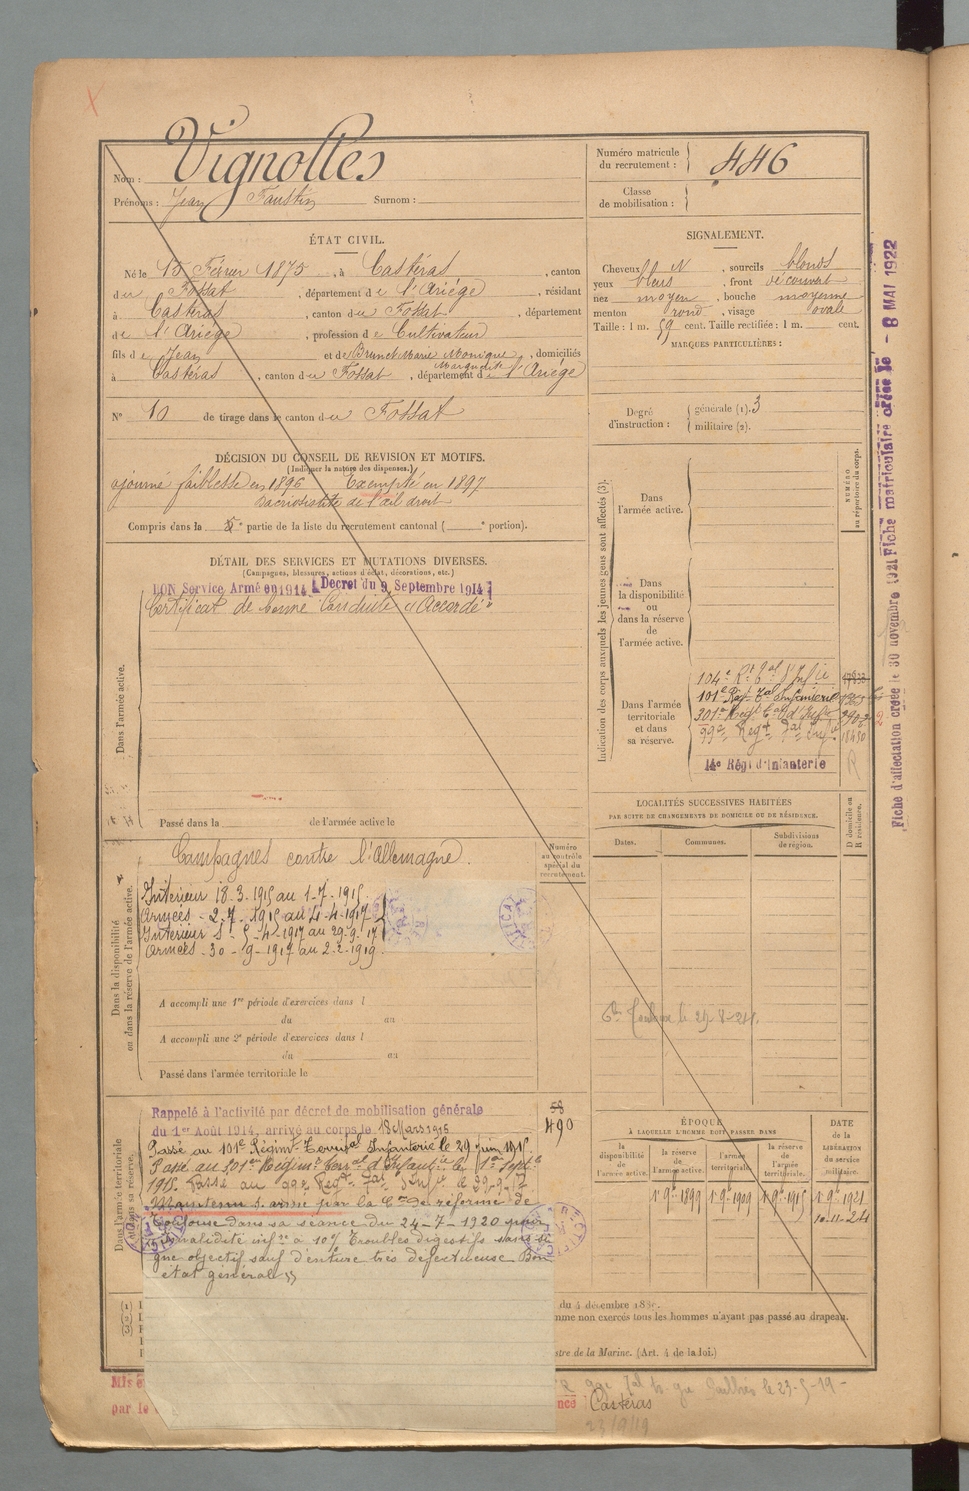 Vignolles
Nom :
Prénoms : Jean Faustin Surnom :
Numéro matricule du recrutement : 446
Classe de mobilisation :
ÉTAT CIVIL.
Né le 15 Février 1875, à Castéras, canton
du Fossat, département de l'Ariège, résidant
à Castéras, canton du Fossat, département
de l'Ariège, profession de Cultivateur
fils de Jean et de Brunet Marie Monique, domiciliés
Marguerite
à Castéras, canton du Fossat, département de l'Ariège
N° 10 de tirage dans le canton du Fossat
SIGNALEMENT.
Cheveux bl N, sourcils blonds
yeux bleus, front découvert
nez moyen, bouche moyenne
menton rond, visage ovale
Taille : 1 m. 59 cent. Taille rectifiée : 1 m. cent.
MARQUES PARTICULIÈRES :
Degré d'instruction : générale (1). 3
militaire (2).
DÉCISION DU CONSEIL DE REVISION ET MOTIFS.
(Indiquer la nature des dispenses.)
ajourné faiblesse en 1896 Exempté en 1897
de l'œil droit
Compris dans la 5e partie de la liste du recrutement cantonal ( e portion).
DÉTAIL DES SERVICES ET MUTATIONS DIVERSES.
(Campagnes, blessures, actions d'éclat, décorations, etc.)
BON Service Armé en 1914 Decret du 9 Septembre 1914
Certificat de bonne Conduite "Accordé"
Dans l'armée active.
Passé dans la de l'armée active le
Indication des corps auxquels les jeunes gens sont affectés (3).
NUMÉRO au répertoire du corps.
Dans l'armée active.
Dans la disponibilité ou dans la réserve de l'armée active.
Dans l'armée territoriale et dans sa réserve.
104e Rt Tal d'Infie
101e Régt Tal Infanterie
301e Régt Tal d'Infie
99e Régt Tal Infie 18450
14e Régt d'Infanterie R
LOCALITÉS SUCCESSIVES HABITÉES
PAR SUITE DE CHANGEMENTS DE DOMICILE OU DE RÉSIDENCE.
Dates.
Communes.
Subdivisions de région.
D domicile ou R résidence.
Toulouse le 29-8-21.
Dans la disponibilité ou dans la réserve de l'armée active.
Numéro au contrôle spécial du recrutement.
Campagnes contre l'Allemagne.
Intérieur 18-3-1915 au 1-7-1915.
Armées - 2-7-1915 au 4-4-1917
Intérieur - 5-4-1917 au 29-9-17
Armées - 30-9-1917 au 2-2-1919.
A accompli une 1re période d'exercices dans l
du au
A accompli une 2e période d'exercices dans l
du au
Passé dans l'armée territoriale le
Dans l'armée territoriale et dans sa réserve.
58
490
Rappelé à l'activité par décret de mobilisation générale
du 1er Août 1914, arrivé au corps le 18 Mars 1915
Passé au 101e Régimt Territal Infanterie le 29 juin 1915.
Passé au 301e Régimt Terral d'Infantie le 1er Septbre
1915. Passé au 99e Regt Tal d'Infie le 29-9-17
Maintenu s. armé par la Con de réforme de
Toulouse dans sa séance du 24-7-1920 pour
invalidité infre à 10% Troubles digestifs sans si
gne objectif sauf denture très défectueuse Bon
état général
ÉPOQUE
À LAQUELLE L'HOMME DOIT PASSER DANS
la disponibilité de l'armée active.
la réserve de l'armée active.
l'armée territoriale.
la réserve de l'armée territoriale.
DATE de la LIBÉRATION du service militaire.
1er 9bre 1899
1er 9bre 1909
1er 9bre 1915
1er 9bre 1921
10-11-24
(1)
(2)
(3)
du 4 décembre 188
mme non exercés tous les hommes n'ayant pas passé au drapeau.
stre de la Marine. (Art. 4 de la loi.)
Mis
par le
Castéras
23/9/19
99e Tal le 23-5-19-
Fiche d'affectation créée le 30 novembre 1921
Fiche matriculaire créée le - 8 MAI 1922